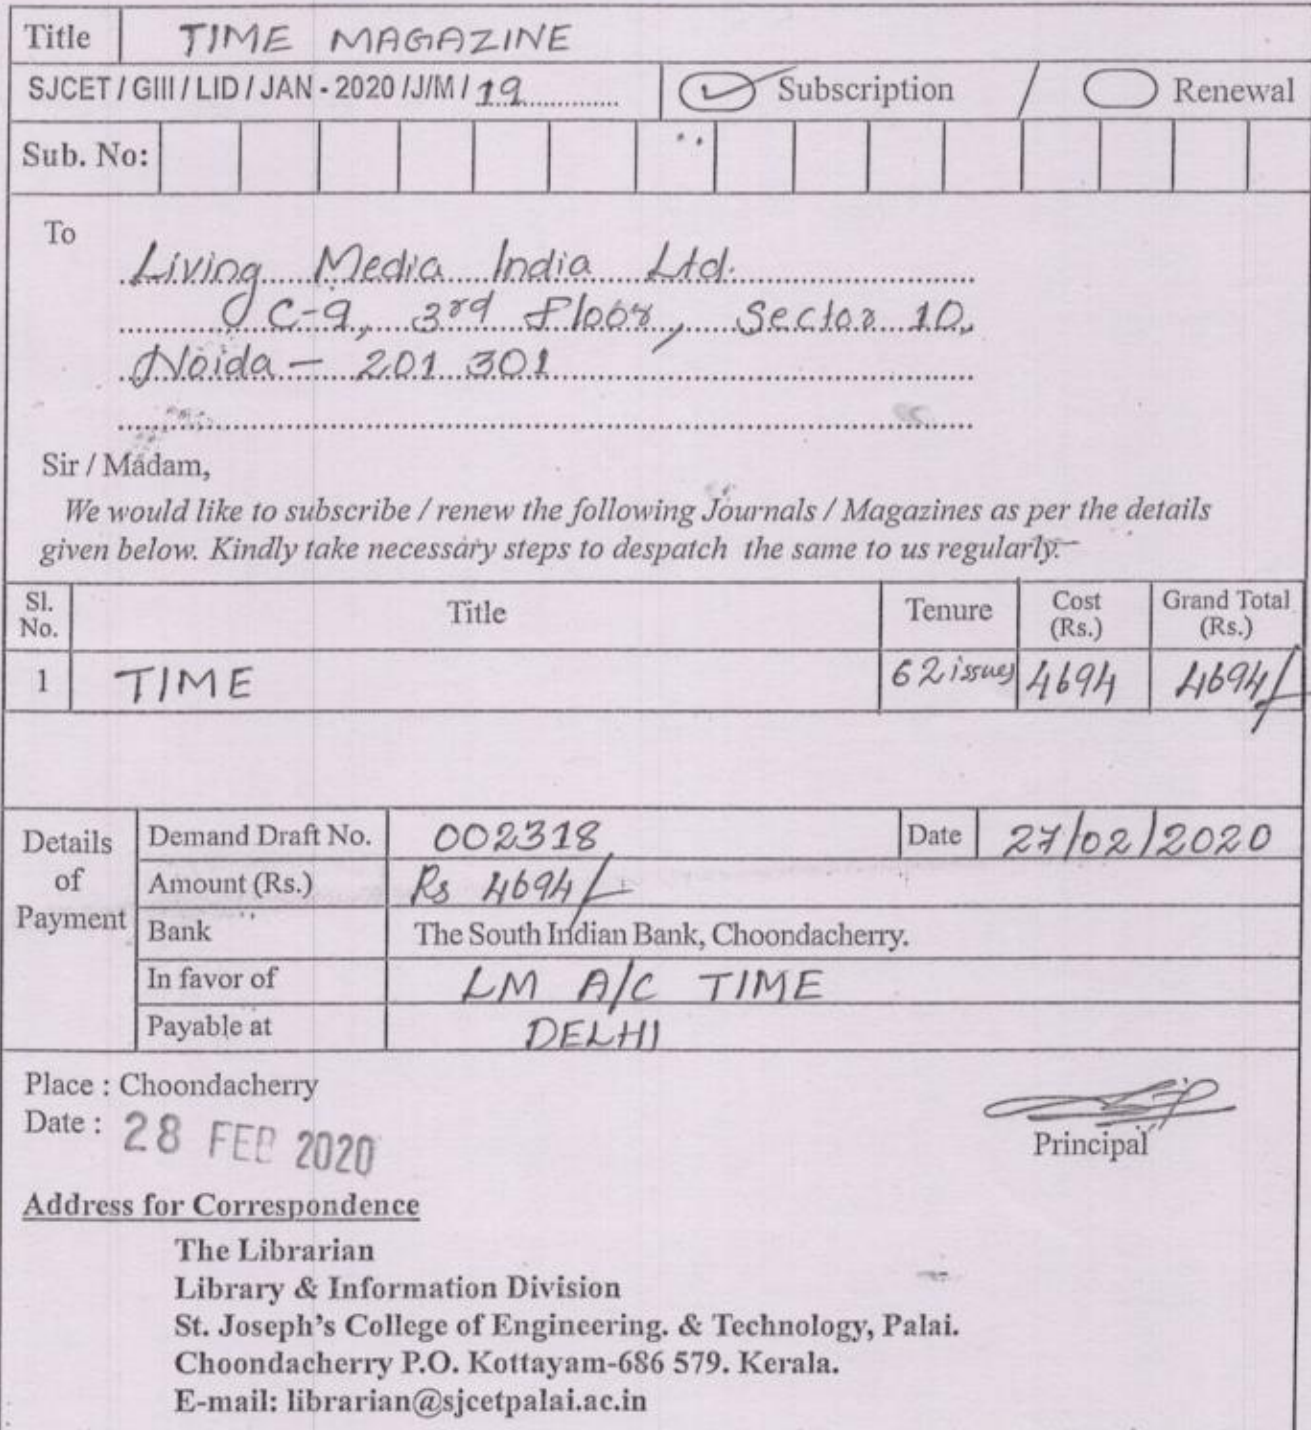 Title TIME MAGAZINE
SJCET / GIII / LID / JAN - 2020 /J/M/ 19 Subscription / Renewal
Sub. No:
To
Living Media India Ltd.
C-9, 3rd Floor, Sector 10,
Noida - 201 301
Sir / Madam,
We would like to subscribe / renew the following Journals / Magazines as per the details
given below. Kindly take necessary steps to despatch the same to us regularly.
Sl. No. Title Tenure Cost (Rs.) Grand Total (Rs.)
1 TIME 62 issues 4694 4694/-
Details of Payment
Demand Draft No. 002318 Date 27/02/2020
Amount (Rs.) Rs 4694/-
Bank The South Indian Bank, Choondacherry.
In favor of LM A/C TIME
Payable at DELHI
Place : Choondacherry
Date : 28 FEB 2020
Principal
Address for Correspondence
The Librarian
Library & Information Division
St. Joseph's College of Engineering. & Technology, Palai.
Choondacherry P.O. Kottayam-686 579. Kerala.
E-mail: librarian@sjcetpalai.ac.in